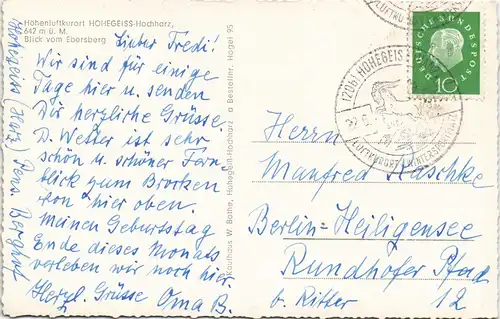 Höhenluftkurort HOHEGEISS-Hochharz,
642 m ü. M.
Blick vom Ebersberg
Lieber Fredi!
Wir sind für einige
Tage hier u. senden
Dir herzliche Grüsse.
D. Wetter ist sehr
schön u. schöner Fern-
blick zum Brocken
von hier oben.
Meinen Geburtstag
Ende dieses Monats
verleben wir noch hier.
Herzl. Grüsse Oma B.
Hohegeiss (Harz) Pens. Berghof
Kaufhaus W. Bothe, Hohegeiß-Hochharz a Besteller. Hagel 95
DEUTSCHE BUNDESPOST
10
(20b) HOHEGEISS
LUFTKURORT
Herrn
Manfred Raschke
Berlin-Heiligensee
Rundhofer Pfad
b. Ritter 12